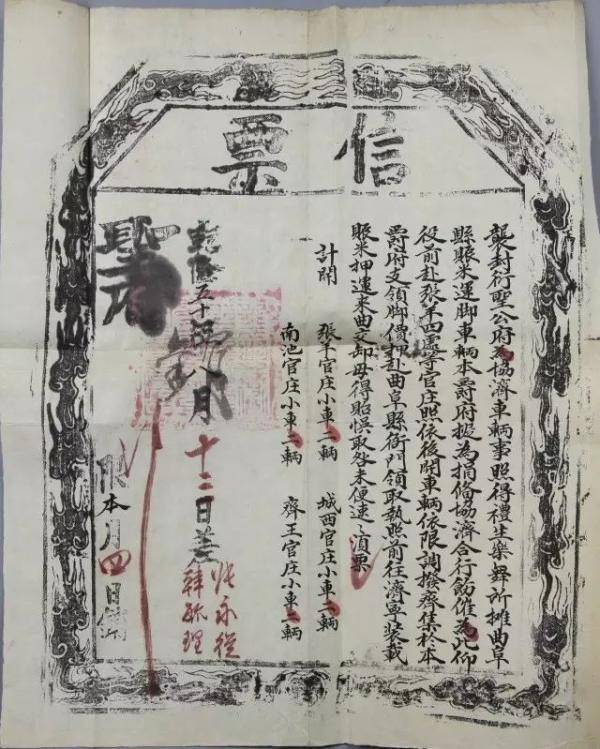 信票
襲封衍聖公府為協濟車輛事照得禮生樂舞所攤曲阜
縣賑米運脚車輛本爵府擬為捐俻協濟合行飭催為此仰
役前赴張羊四處等官庄照依後開車輛依限調撥齊集於本
爵府支領脚價押赴曲阜縣衙門領取執照前往濟寧裝載
賑米押運來曲交卸毋得貽悞取咎未便速速須票
計開
張羊官庄小車二輛 城西官庄小車二輛
南池官庄小車二輛 齊王官庄小車二輛
乾隆五十年八月十二日差
張永從
韓
限本月四日銷